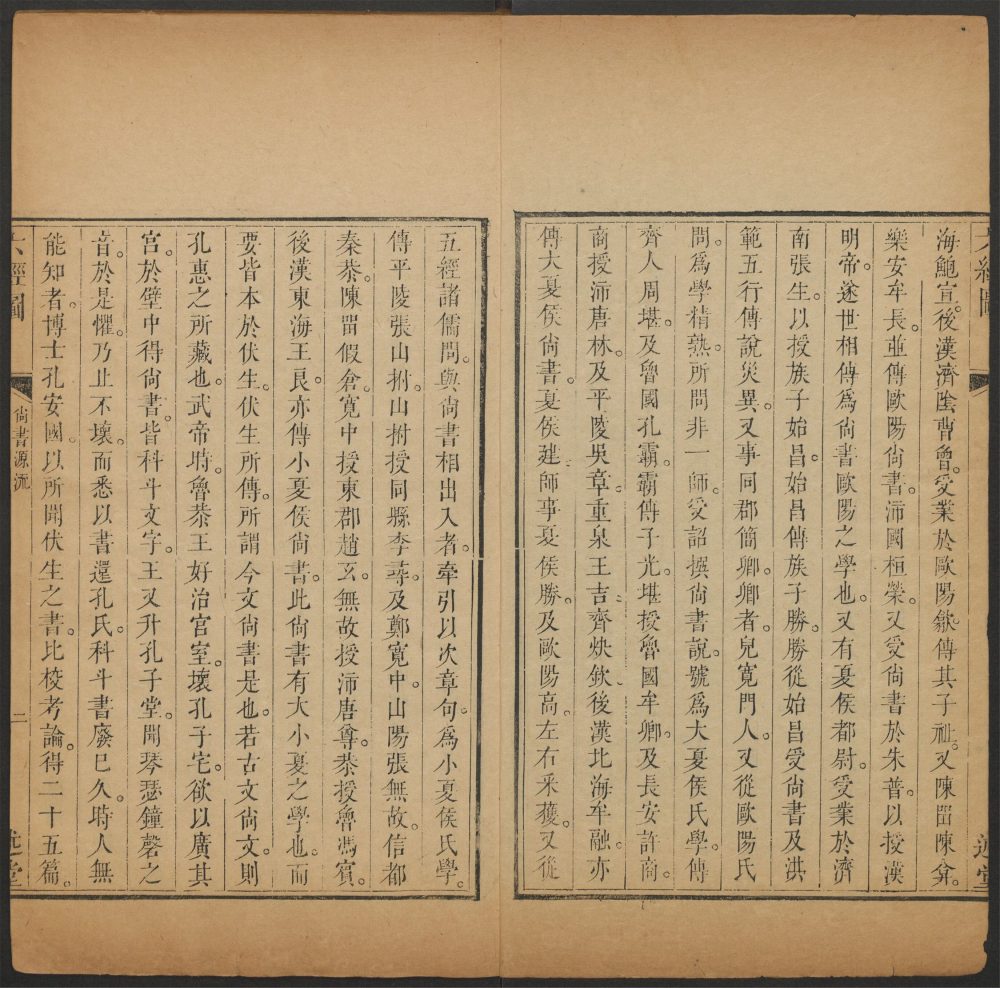 海鮑宣。後漢濟陰曹曾。受業於歐陽歙。傳其子祉。又陳畱陳弇。
樂安牟長。並傳歐陽尙書。沛國桓榮。又受尙書於朱普。以授漢
明帝。遂世相傳爲尙書歐陽之學也。又有夏侯都尉。受業於濟
南張生。以授族子始昌。始昌傳族子勝。勝從始昌受尙書及洪
範五行傳說災異。又事同郡簡卿。卿者。兒寬門人。又從歐陽氏
問。爲學精熟。所問非一師。受詔撰尙書說。號爲大夏侯氏學。傳
齊人周堪。及魯國孔霸。霸傳子光。堪授魯國牟卿。及長安許商。
商授沛唐林。及平陵吳章。重泉王吉。齊炔欽。後漢北海牟融。亦
傳大夏侯尙書。夏侯建師事夏侯勝。及歐陽高。左右采獲。又從
五經諸儒問。與尙書相出入者。牽引以次章句。爲小夏侯氏學。
傳平陵張山拊。山拊授同縣李尋。及鄭寬中。山陽張無故。信都
秦恭。陳畱假倉。寬中授東郡趙玄。無故授沛唐尊。恭授魯馮賓。
後漢東海王良。亦傳小夏侯尙書。此尙書有大小夏之學也。而
要皆本於伏生。伏生所傳。所謂今文尙書是也。若古文尙文。則
孔惠之所藏也。武帝時。魯恭王好治宮室。壞孔子宅。欲以廣其
宮。於壁中得尙書。皆科斗文字。王又升孔子堂。聞琴瑟鐘磬之
音。於是懼。乃止不壞。而悉以書還孔氏。科斗書廢已久。時人無
能知者。博士孔安國。以所聞伏生之書。比校考論。得二十五篇。
六經圖
尙書源流
二